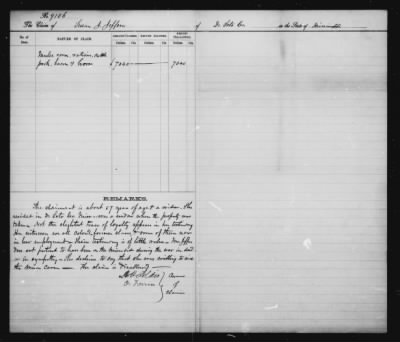 No 9106
The Claim of Susan A. Jeffson of De Soto Co. in the State of Mississippi
No. of Item. NATURE OF CLAIM. AMOUNT CLAIMED. AMOUNT ALLOWED. AMOUNT DISALLOWED.
Dollars. Cts. Dollars. Cts. Dollars. Cts.
mules corn cattle
pork $7040 7040
REMARKS.
The claimant is about 57 years of age & a widow. She
resided in De Soto Co. Miss. & was a widow when the property was
taken. Not the slightest trace of loyalty appears in her testimony
Her witnesses are all Colored, former slaves & some of them now
in her employment & their testimony is of little value.
does not pretend to have been on the Union side during the war in deed
or in sympathy. She declines to say that she was willing to see
the Union cause The claim is Disallowed
A. O. Aldis
O. Ferriss
Comrs
of
Claims